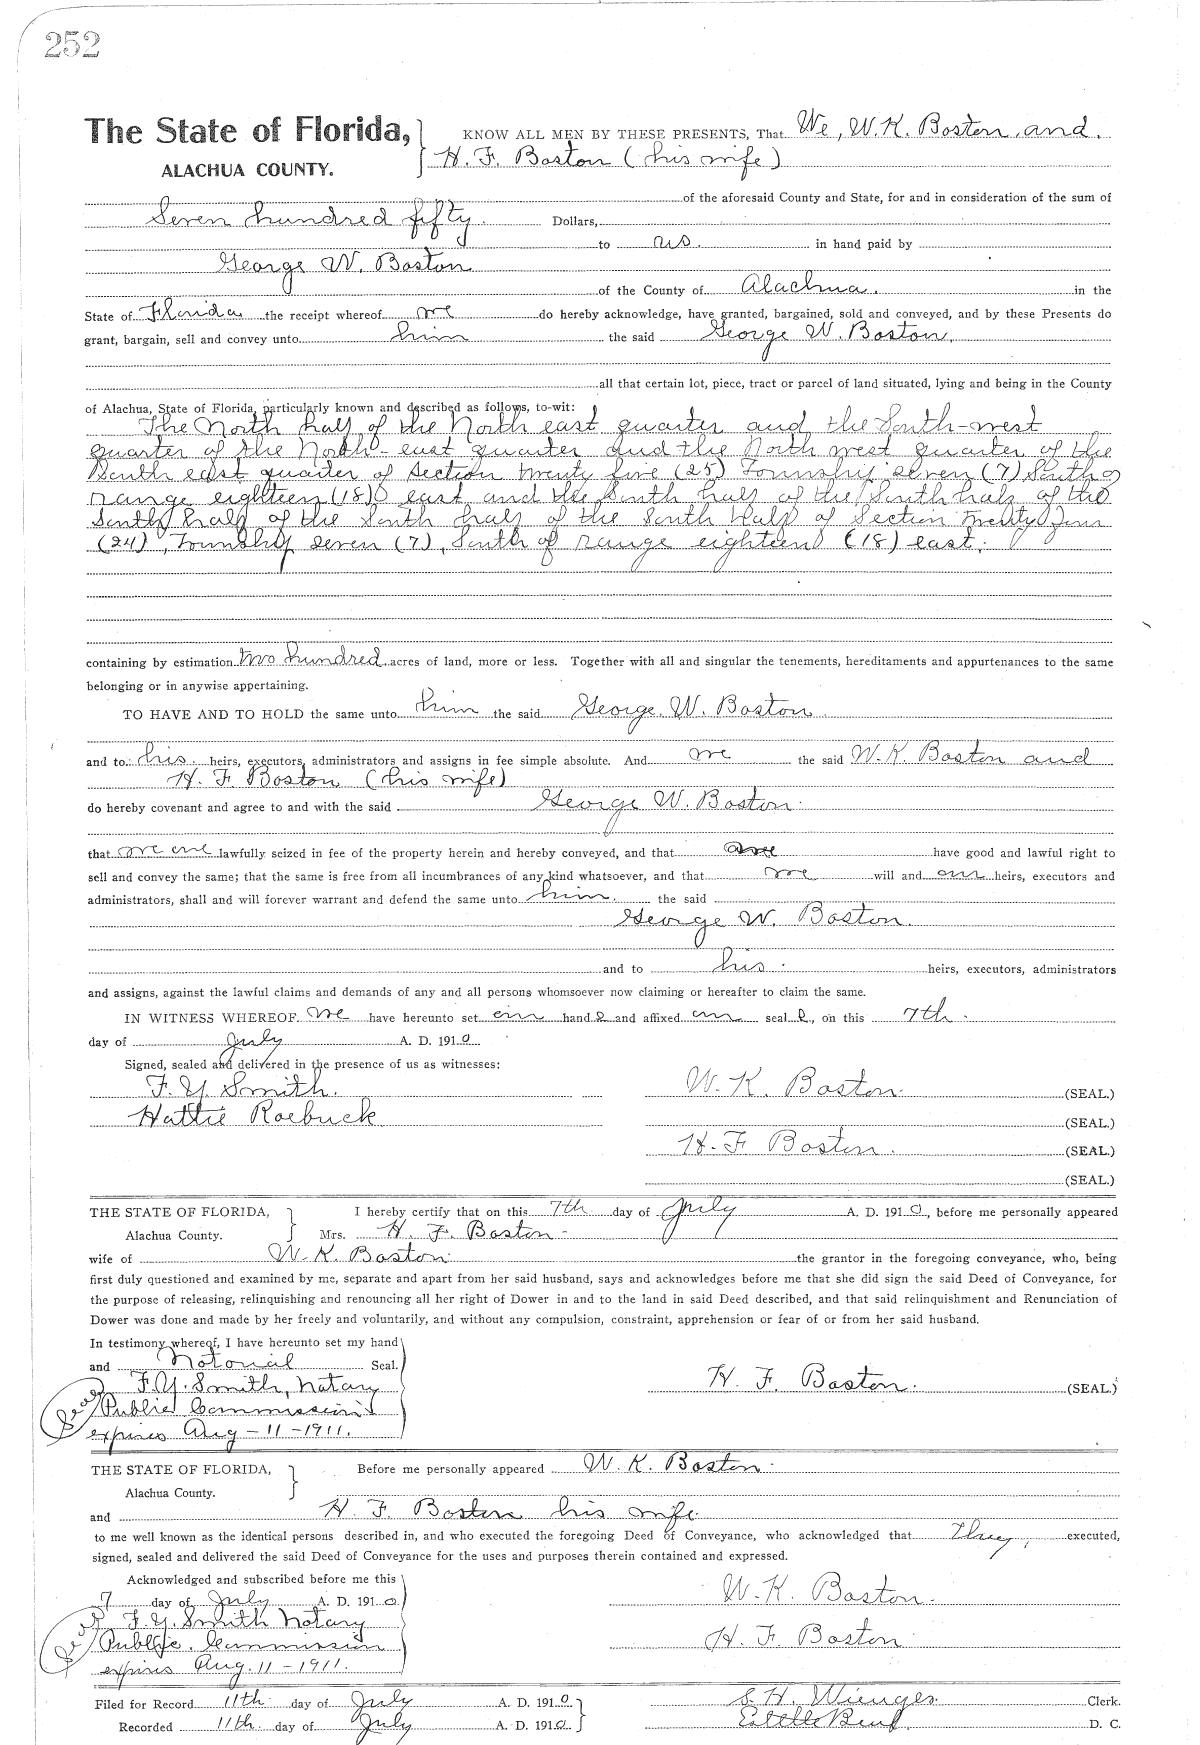 252
The State of Florida,
ALACHUA COUNTY.
KNOW ALL MEN BY THESE PRESENTS, That We, W. K. Boston and
H. F. Boston (his wife)
of the aforesaid County and State, for and in consideration of the sum of
Seven hundred fifty Dollars,
to us in hand paid by
George W. Boston
of the County of Alachua in the
State of Florida the receipt whereof we do hereby acknowledge, have granted, bargained, sold and conveyed, and by these Presents do
grant, bargain, sell and convey unto him the said George W. Boston,
all that certain lot, piece, tract or parcel of land situated, lying and being in the County
of Alachua, State of Florida, particularly known and described as follows, to-wit:
The North half of the North east quarter and the South-west
quarter of the North-east quarter and the North west quarter of the
South east quarter of Section twenty five (25) Township seven (7) South of
range eighteen (18) east and the South half of the South half of the
South half of the South half of the South Half of Section Twenty four
(24), Township seven (7), South of range eighteen (18) east.
containing by estimation two hundred acres of land, more or less. Together with all and singular the tenements, hereditaments and appurtenances to the same
belonging or in anywise appertaining.
TO HAVE AND TO HOLD the same unto him the said George W. Boston
and to his heirs, executors, administrators and assigns in fee simple absolute. And we the said W. K Boston and
H. F. Boston (his wife)
do hereby covenant and agree to and with the said George W. Boston
that we are lawfully seized in fee of the property herein and hereby conveyed, and that have good and lawful right to
sell and convey the same; that the same is free from all incumbrances of any kind whatsoever, and that we will and our heirs, executors and
administrators, shall and will forever warrant and defend the same unto him the said
George W. Boston.
and to his heirs, executors, administrators
and assigns, against the lawful claims and demands of any and all persons whomsoever now claiming or hereafter to claim the same.
IN WITNESS WHEREOF We have hereunto set our hands and affixed our seals, on this 7th
day of July A. D. 1910
Signed, sealed and delivered in the presence of us as witnesses:
F. Y. Smith. W. K. Boston (SEAL.)
Hattie Roebuck (SEAL.)
H. F Boston (SEAL.)
(SEAL.)
THE STATE OF FLORIDA,
Alachua County.
I hereby certify that on this 7th day of July A. D. 1910, before me personally appeared
Mrs. H. F. Boston
wife of W. K. Boston the grantor in the foregoing conveyance, who, being
first duly questioned and examined by me, separate and apart from her said husband, says and acknowledges before me that she did sign the said Deed of Conveyance, for
the purpose of releasing, relinquishing and renouncing all her right of Dower in and to the land in said Deed described, and that said relinquishment and Renunciation of
Dower was done and made by her freely and voluntarily, and without any compulsion, constraint, apprehension or fear of or from her said husband.
In testimony whereof, I have hereunto set my hand
and Notorial Seal.
F. Y. Smith, Notary H. F. Boston. (SEAL)
Seal Public Commission
expires Aug-11-1911.
THE STATE OF FLORIDA,
Alachua County.
Before me personally appeared W. K. Boston
and H. F. Boston his wife
to me well known as the identical persons described in, and who executed the foregoing Deed of Conveyance, who acknowledged that they, executed,
signed, sealed and delivered the said Deed of Conveyance for the uses and purposes therein contained and expressed.
Acknowledged and subscribed before me this
7 day of July A. D. 1910 W. K. Boston.
Seal F. Y. Smith Notary
Public. Commission H. F Boston
expires Aug. 11-1911.
Filed for Record 11th day of July A. D. 1910 S. H. Wienges Clerk.
Recorded 11th day of July A. D. 1910 D. C.